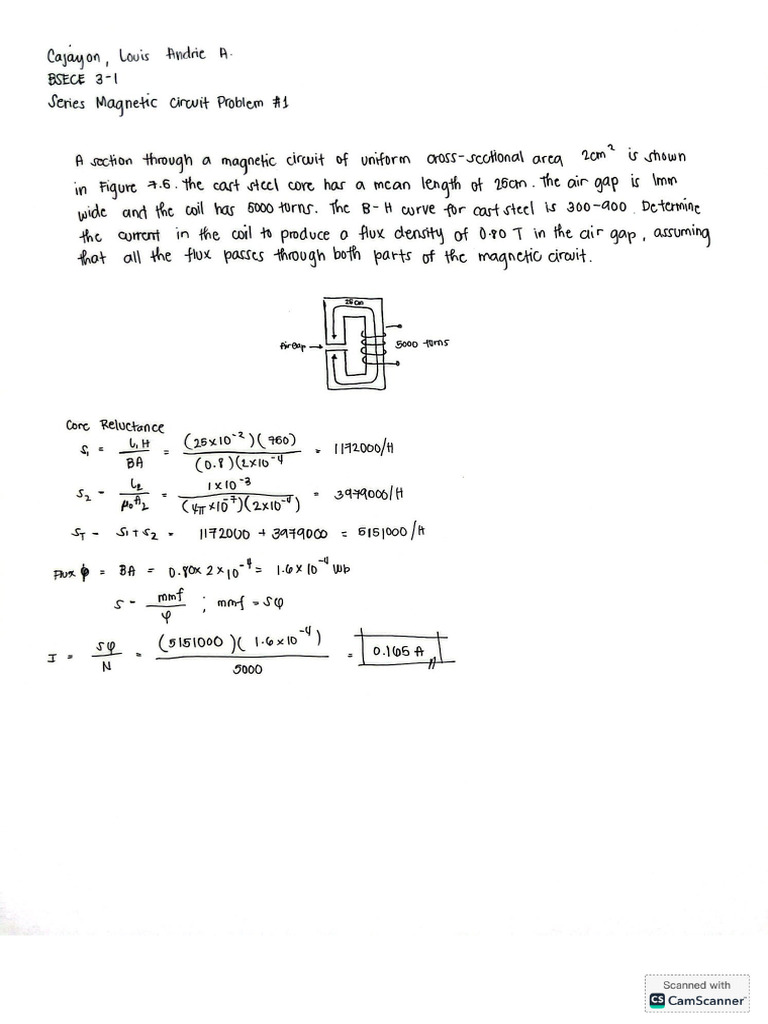 Cajayon, Louis Andrie A.
BSECE 3-1
Series Magnetic Circuit Problem #1
A section through a magnetic circuit of uniform cross-sectional area 2cm² is shown
in Figure 7.5. The cast steel core has a mean length of 25cm. The air gap is 1mm
wide and the coil has 5000 turns. The B-H curve for cast steel is 300-900. Determine
the current in the coil to produce a flux density of 0.80 T in the air gap, assuming
that all the flux passes through both parts of the magnetic circuit.
25cm
Air Gap
5000 turns
Core Reluctance
S₁ = l₁H / BA = (25x10⁻²)(750) / (0.8)(2x10⁻⁴ = 1172000/H
S₂ = l₂ / μ₀A₂ = 1x10⁻³ / (4π x10⁻⁷)(2x10⁻⁴) = 3979000/H
ST = S₁+S₂ = 1172000 + 3979000 = 5151000/H
Flux φ = BA = 0.80x 2x10⁻⁴ = 1.6x10⁻⁴ Wb
S = mmf / φ ; mmf = Sφ
I = Sφ / N = (5151000)(1.6x10⁻⁴) / 5000 = 0.165 A
Scanned with
CS CamScanner